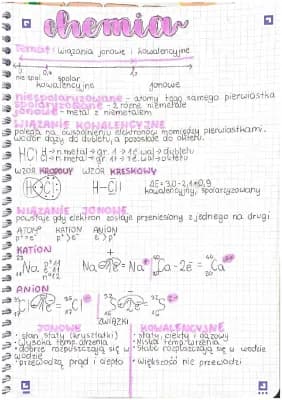 chemia
Temat: wiązania jonowe i kowalencyjne
0 0,4 1,7
niespol. spolar.
kowalencyjne jonowe
niespolaryzowane - atomy tego samego pierwiastka
spolaryzowane - 2 różne niemetale
jonowe - metal z niemetalem
WIĄZANIE KOWALENCYJNE
polega na uwspólnieniu elektronów pomiędzy pierwiastkami.
wodór dąży do dubletu, a pozostałe do oktetu.
HCl H → n.metal → gr. 1 → 1e. wal → dubletu
WZÓR KROPKOWY WZÓR KRESKOWY
H Cl H-Cl ΔE=3,0-2,1=0,9
kowalencyjny, spolaryzowany
WIĄZANIE JONOWE
powstaje gdy elektron zostaje przeniesiony z jednego na drugi
ATOM KATION ANION
p⁺=e⁻ p⁺>e⁻ e⁻>p⁺
KATION
Na p⁺11 Na Na⁺ Ca-2e⁻= Ca
ANION
Cl S
ZWIĄZKI
JONOWE KOWALENCYJNE
• stan stały (kryształki) • stały, ciekły i gazowy
• Wysoka temp. wrzenia • Niska temp. wrzenia
• dobrze rozpuszczają się w wodzie • Słabo rozpuszczają się w wodzie
• przewodzą prąd i ciepło • Większość nie przewodzi